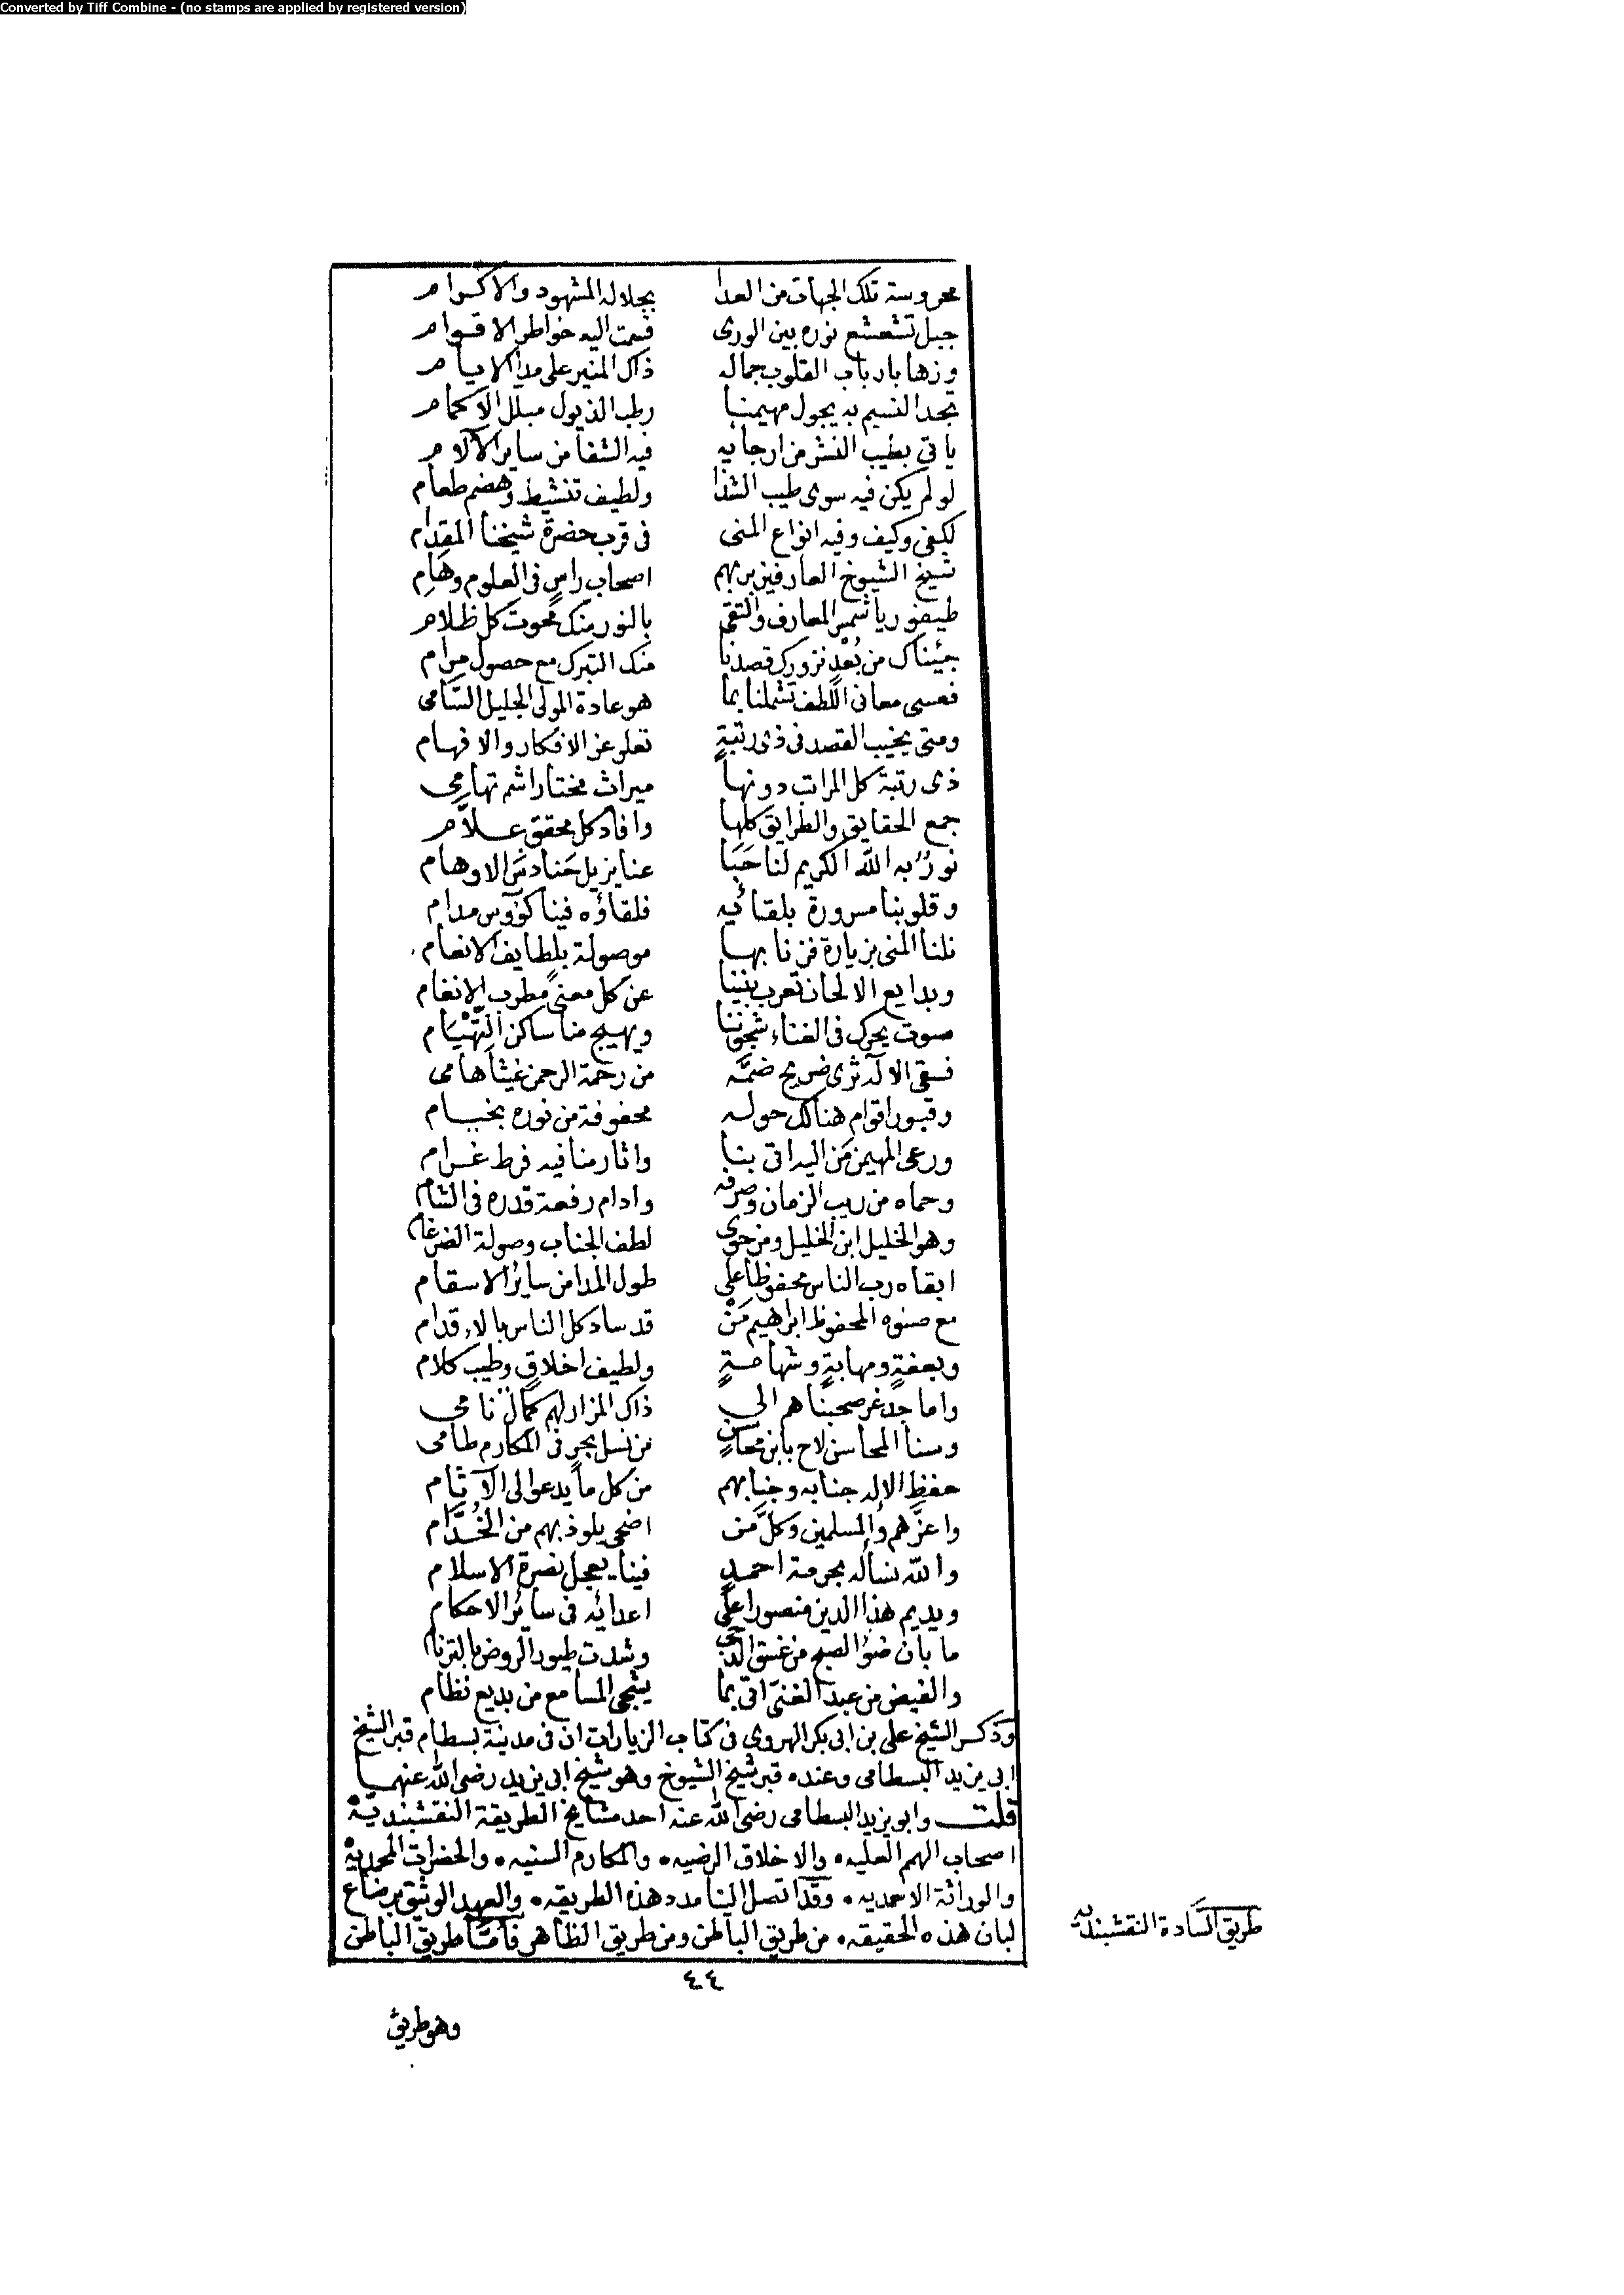 Converted by Tiff Combine - (no stamps are applied by registered version)
محروسة تلك الجهات من العدا بجلاله المشهود والاكرام
جبل تشعشع نوره بين الورى فسمت اليه خواطر الاقوام
وزها بارباب القلوب جماله ذاك المنير على مدا الايام
تجد النسيم به يجول مهيمنا رطب الذيول مبلل الاكمام
ياتي بطيب النشر من ارجائه فيه الشفا من ساير الآلام
لو لم يكن فيه سوى طيب الشذا ولطيف تنشيط وهضم طعام
لكفى وكيف وفيه انواع المنى فى قرب حضرة شيخنا المقدام
شيخ الشيوخ العارفين بربهم اصحاب راسٍ فى العلوم وهامِ
طيفور يا شمس المعارف والتقى بالنور منك محوت كل ظلام
جئناك من بُعْدٍ نزورك قصدنا منك التبرك مع حصول مرام
فعسى معانى اللطف تشملنا بما هو عادة المولى الجليل السَّامى
ومتى يخيب القصد فى ذى رتبةٍ تعلو عن الافكار والافهام
ذى رتبة كل المراتب دونها ميراث مختار اشم تهامِى
جمع الحقايق والطرايق كلها وافاد كل محقق علاَّم
نورٌ به الله الكريم لنا حَبَا عنا يزيل حَنادسَ الاوهام
وقلوبنا مسرورة بلقائه فلقاؤه فينا كؤوس مدام
نلنا المنى بزيارة فزنا بها موصولة بلطايف الانعام
وبدايع الالحان تعرب بيننا عن كل معنىً مطرب الانغام
صوت يحرك فى الغناء شجوننا ويهيج منا ساكن التَّهْيَام
فسقى الاله ثرى ضريح ضمَّه من رحمة الرحمن غيثًا هامى
وقبور اقوام هناك حوله محفوفة من نوره بخيام
ورعى المهيمن مَن اليه اتى بنا واثار منا فيه فرط غرام
وحماه من ريب الزمان وصرفه وادام رفعة قدره فى الشام
وهو الخليل ابن الخليل ومن حوى لطف الجناب وصولة الضرغام
ابقاه رب الناس محفوظا على طول المدا من سائر الاسقام
مع صنوه المحفوظ ابراهيم مَنْ قد ساد كل الناس بالاقدام
وبعفةٍ ومهابةٍ وشهامةٍ ولطيف اخلاقٍ وطيب كلام
واماجد غر صحبناهم الى ذاك المزار لهم كمالٌ نامى
وسنا المحاسن لاح بابن محاسن من نسل بحرٍ فى المكارم طامى
حفظ الاله جنابه وجنابهم من كل ما يدعو الى الآثام
واعزَّهم والمسلمين وكلَّ من اضحى يلوذ بهم من الخُدَّام
والله نسأله بحرمة احمدٍ فينا يعجل نصرة الاسلام
ويديم هذا الدين منصورا على اعدائه فى سائر الاحكام
ما بان ضوُ الصبح من غسق الدجى وشدت طيور الروض بالترنام
والفيض من عبد الغنىّ اتى بما يشجى المسامع من بديع نظام
وذكر الشيخ على بن ابى بكر الهروى فى كتاب الزيارات ان فى مدينة بسطام قبر الشيخ
ابى يزيد البسطامى وعنده قبر شيخ الشيوخ وهو شيخ ابى يزيد رضى الله عنهما
قلت وابو يزيد البسطامى رضى الله عنه احد مشايخ الطريقة النقشبنديّة
اصحاب الهمم العليه، والاخلاق الرضيه، والمكارم السنيه، والحضرات المحمدية
والوراثة الاحمديه، وقد اتصل الينا مدد هذه الطريقه، والعهد الوثيق برضاع
لبان هذه الحقيقه، من طريق الباطن ومن طريق الظاهر فأمَّا طريق الباطن
طريق السَّادة النقشبنديه
٤٤
وهو طريق